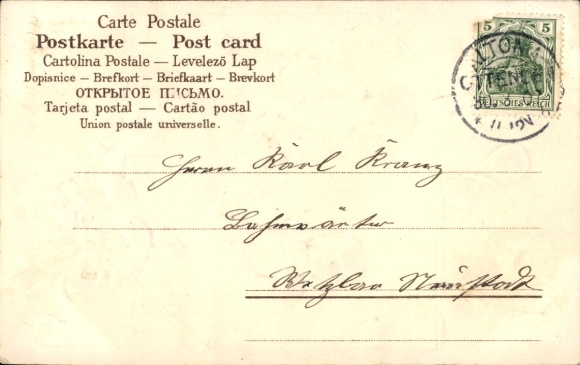 Carte Postale
Postkarte — Post card
Cartolina Postale — Levelezö Lap
Dopisnice — Brefkort — Briefkaart — Brevkort
ОТКРЫТОЕ ПИСЬМО.
Tarjeta postal — Cartão postal
Union postale universelle.
5 5
DEUTSCHES REICH
ALTONA
OTTENSEN
Herrn Karl Kranz
Bahnwärter
Wetzlar Neustadt